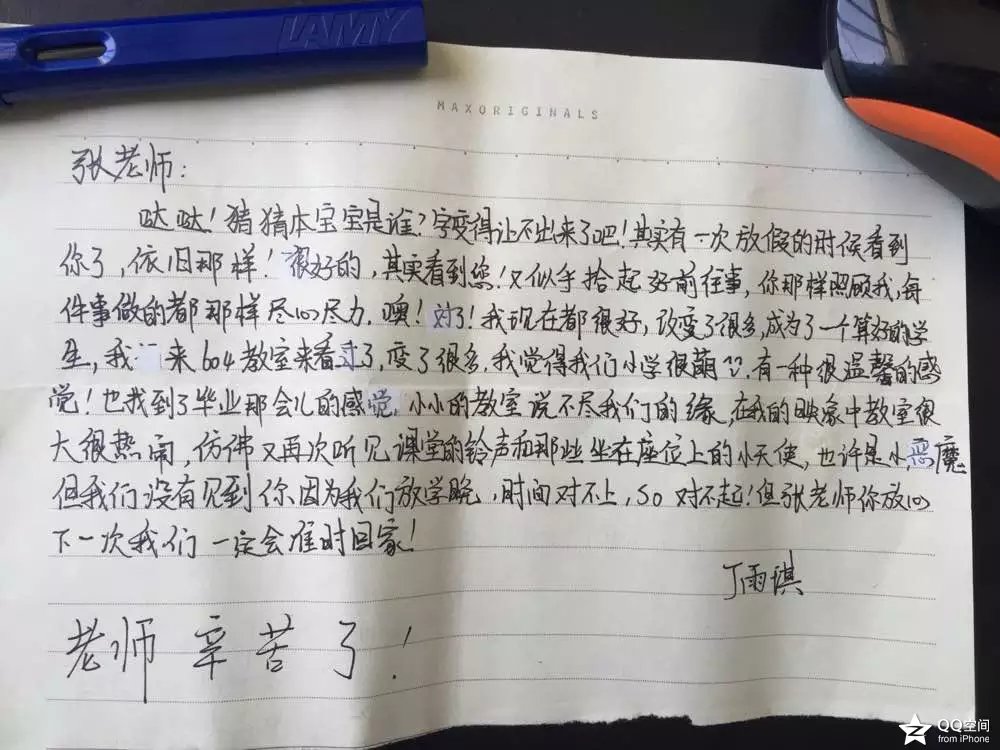 LAMY
MAXORIGINALS
张老师：
哒哒！猜猜本宝宝是谁？字变得让不出来了吧！其实有一次放假的时候看到
你了，依旧那样！很好的，其实看到您！又似乎拾起好前往事，你那样照顾我，每
件事做的都那样尽心尽力，噢！对了！我现在都很好，改变了很多，成为了一个算好的学
生，我来604教室来看过了，变了很多，我觉得我们小学很萌，有一种很温馨的感
觉！也找到了毕业那会儿的感觉，小小的教室说不尽我们的缘，在我的映象中教室很
大很热闹，仿佛又再次听见课堂的铃声和那些坐在座位上的小天使，也许是小恶魔
但我们没有见到你因为我们放学晚，时间对不上，so 对不起！但张老师你放心
下一次我们一定会准时回家！
丁雨琪
老师辛苦了！
QQ空间
from iPhone